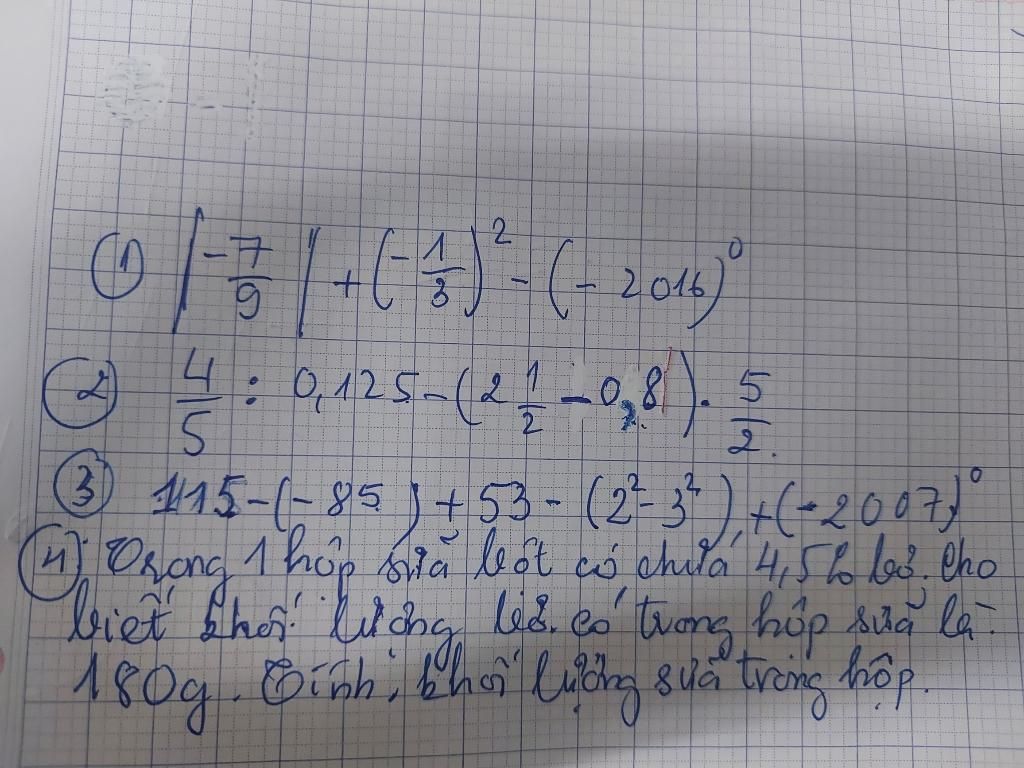 ① |-7/9| + (-1/3)² - (-2016)⁰
② 4/5 : 0,125 - (2 1/2 - 0,8) . 5/2.
③ 115 - (-85) + 53 - (2² - 3²) + (-2007)⁰
④ Trong 1 hộp sữa bột có chứa 4,5% bơ. Cho
biết khối lượng bơ có trong hộp sữa là
180g. Tính khối lượng sữa trong hộp.